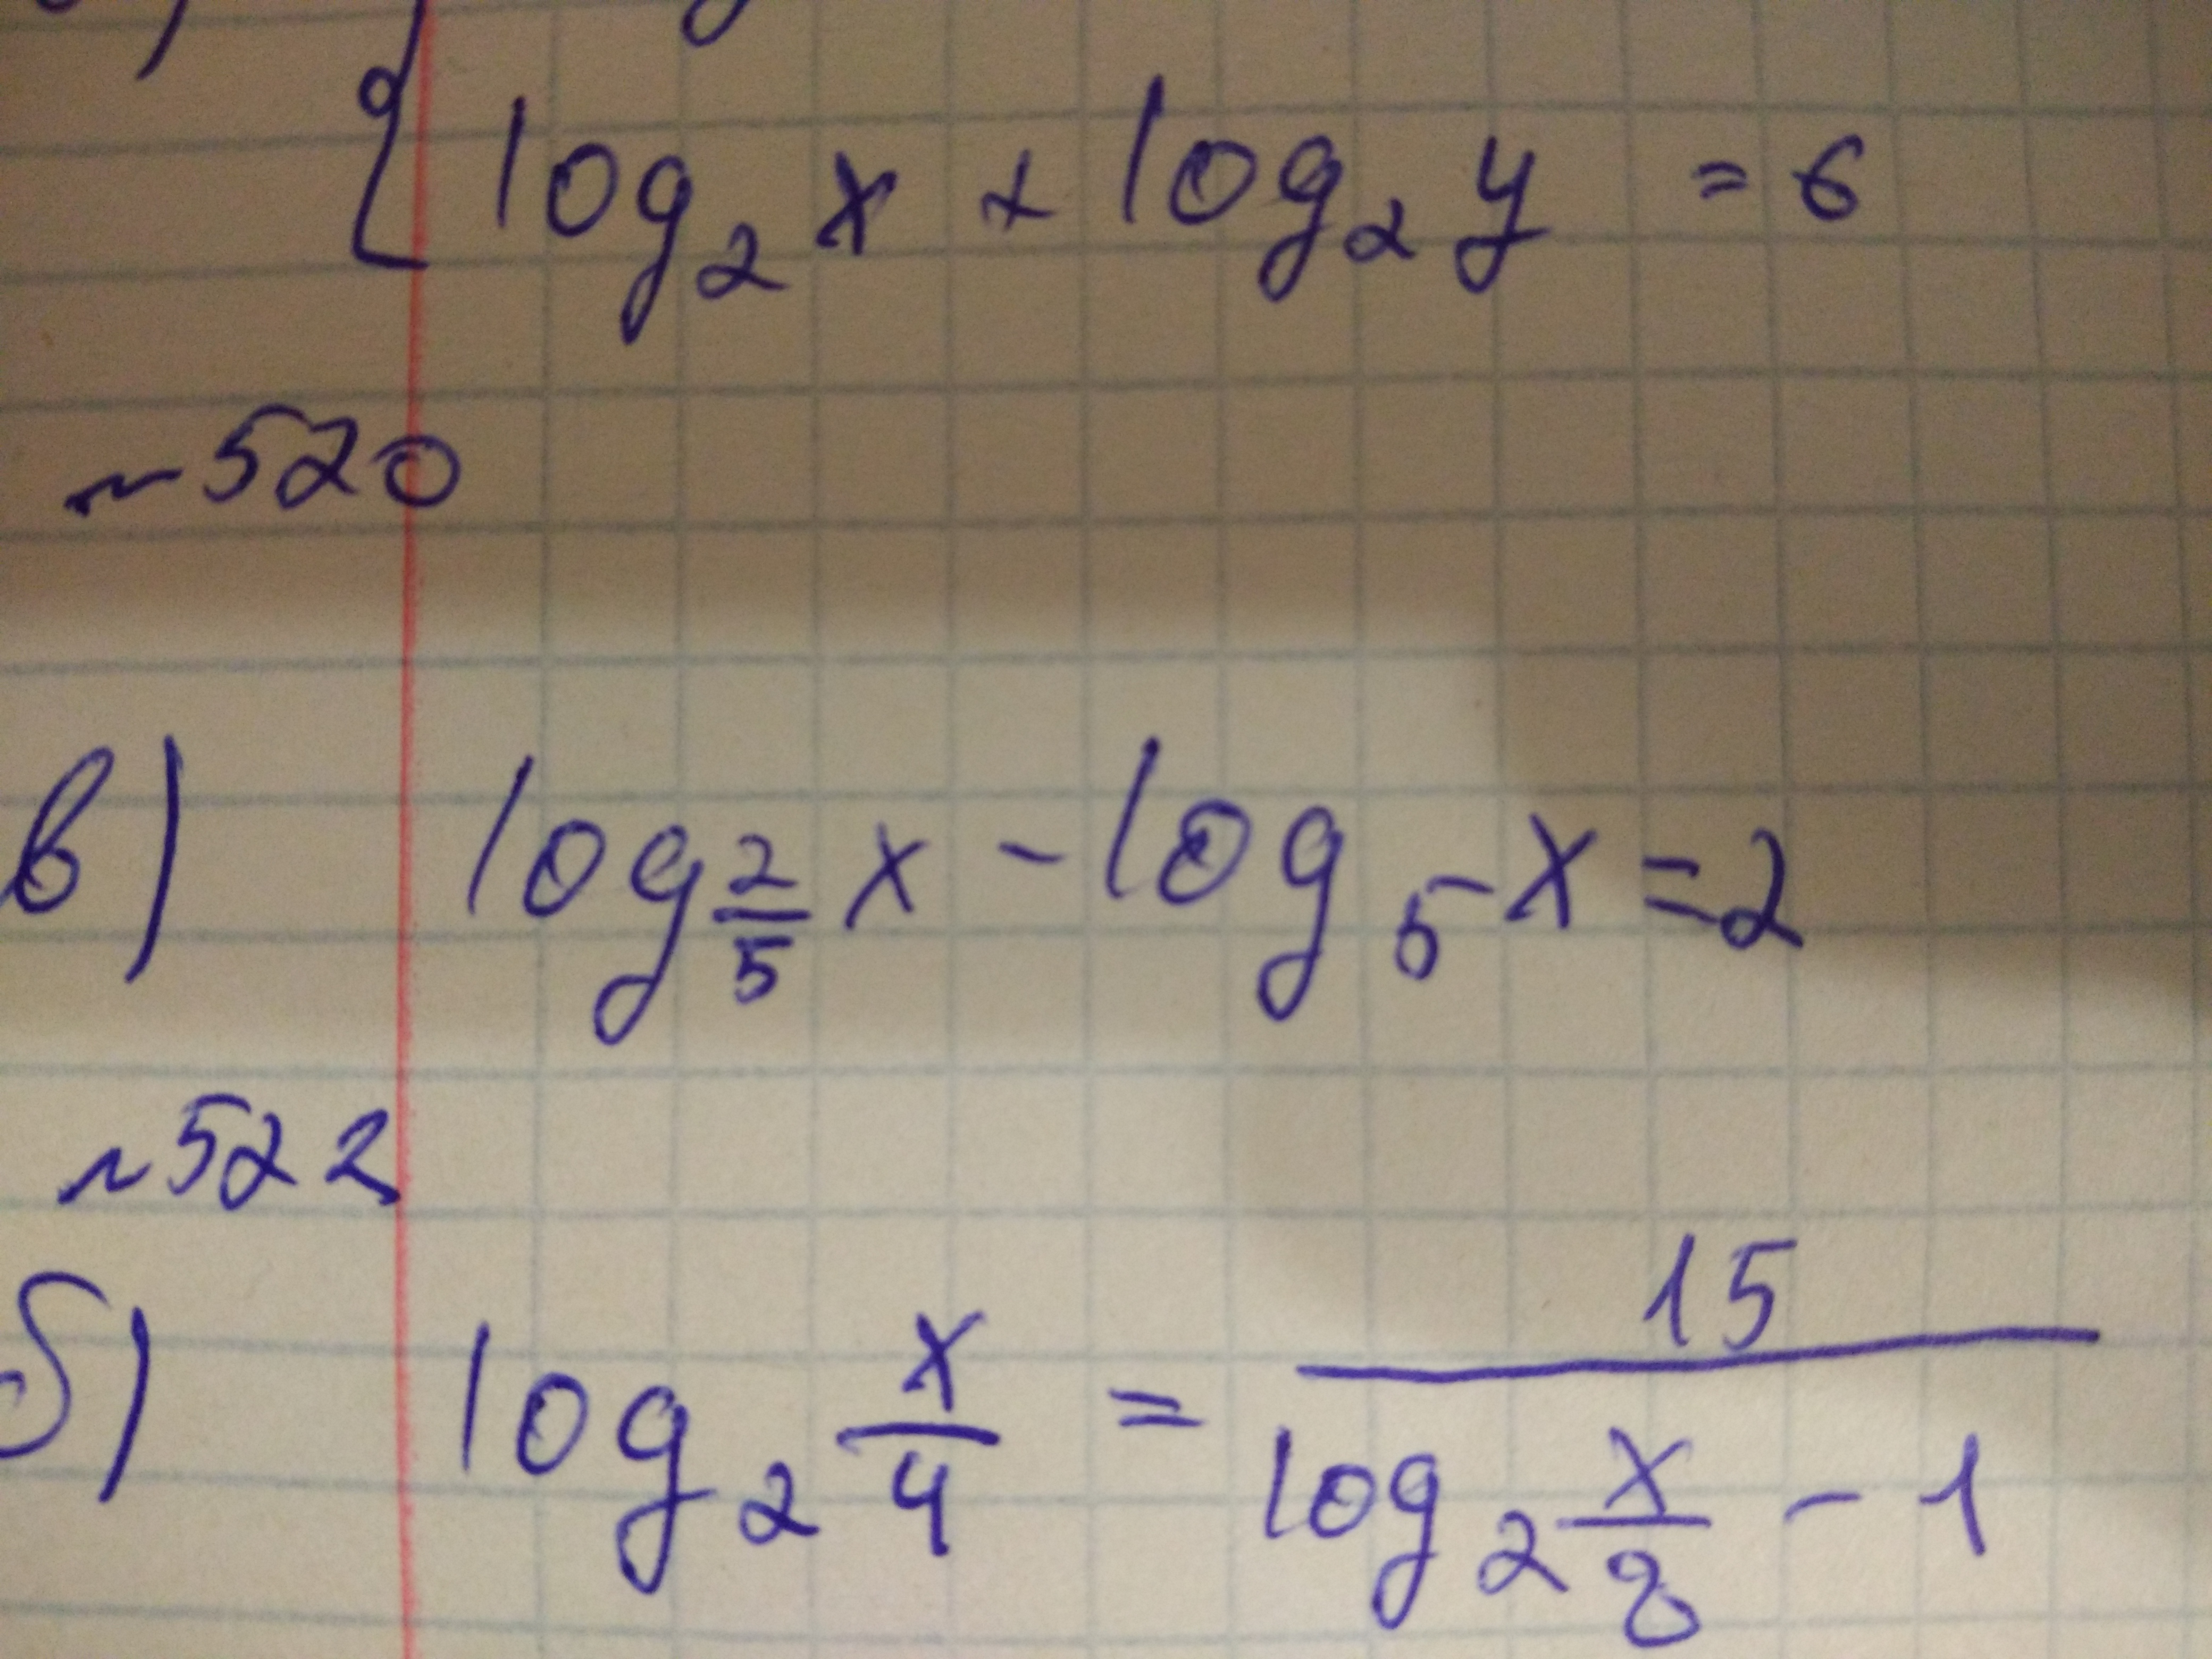 log₂ x + log₂ y = 6
~520
в) log_{2/5} x - log₅ x = 2
~522
б) log₂ x/4 = 15/(log₂ x/8 - 1)